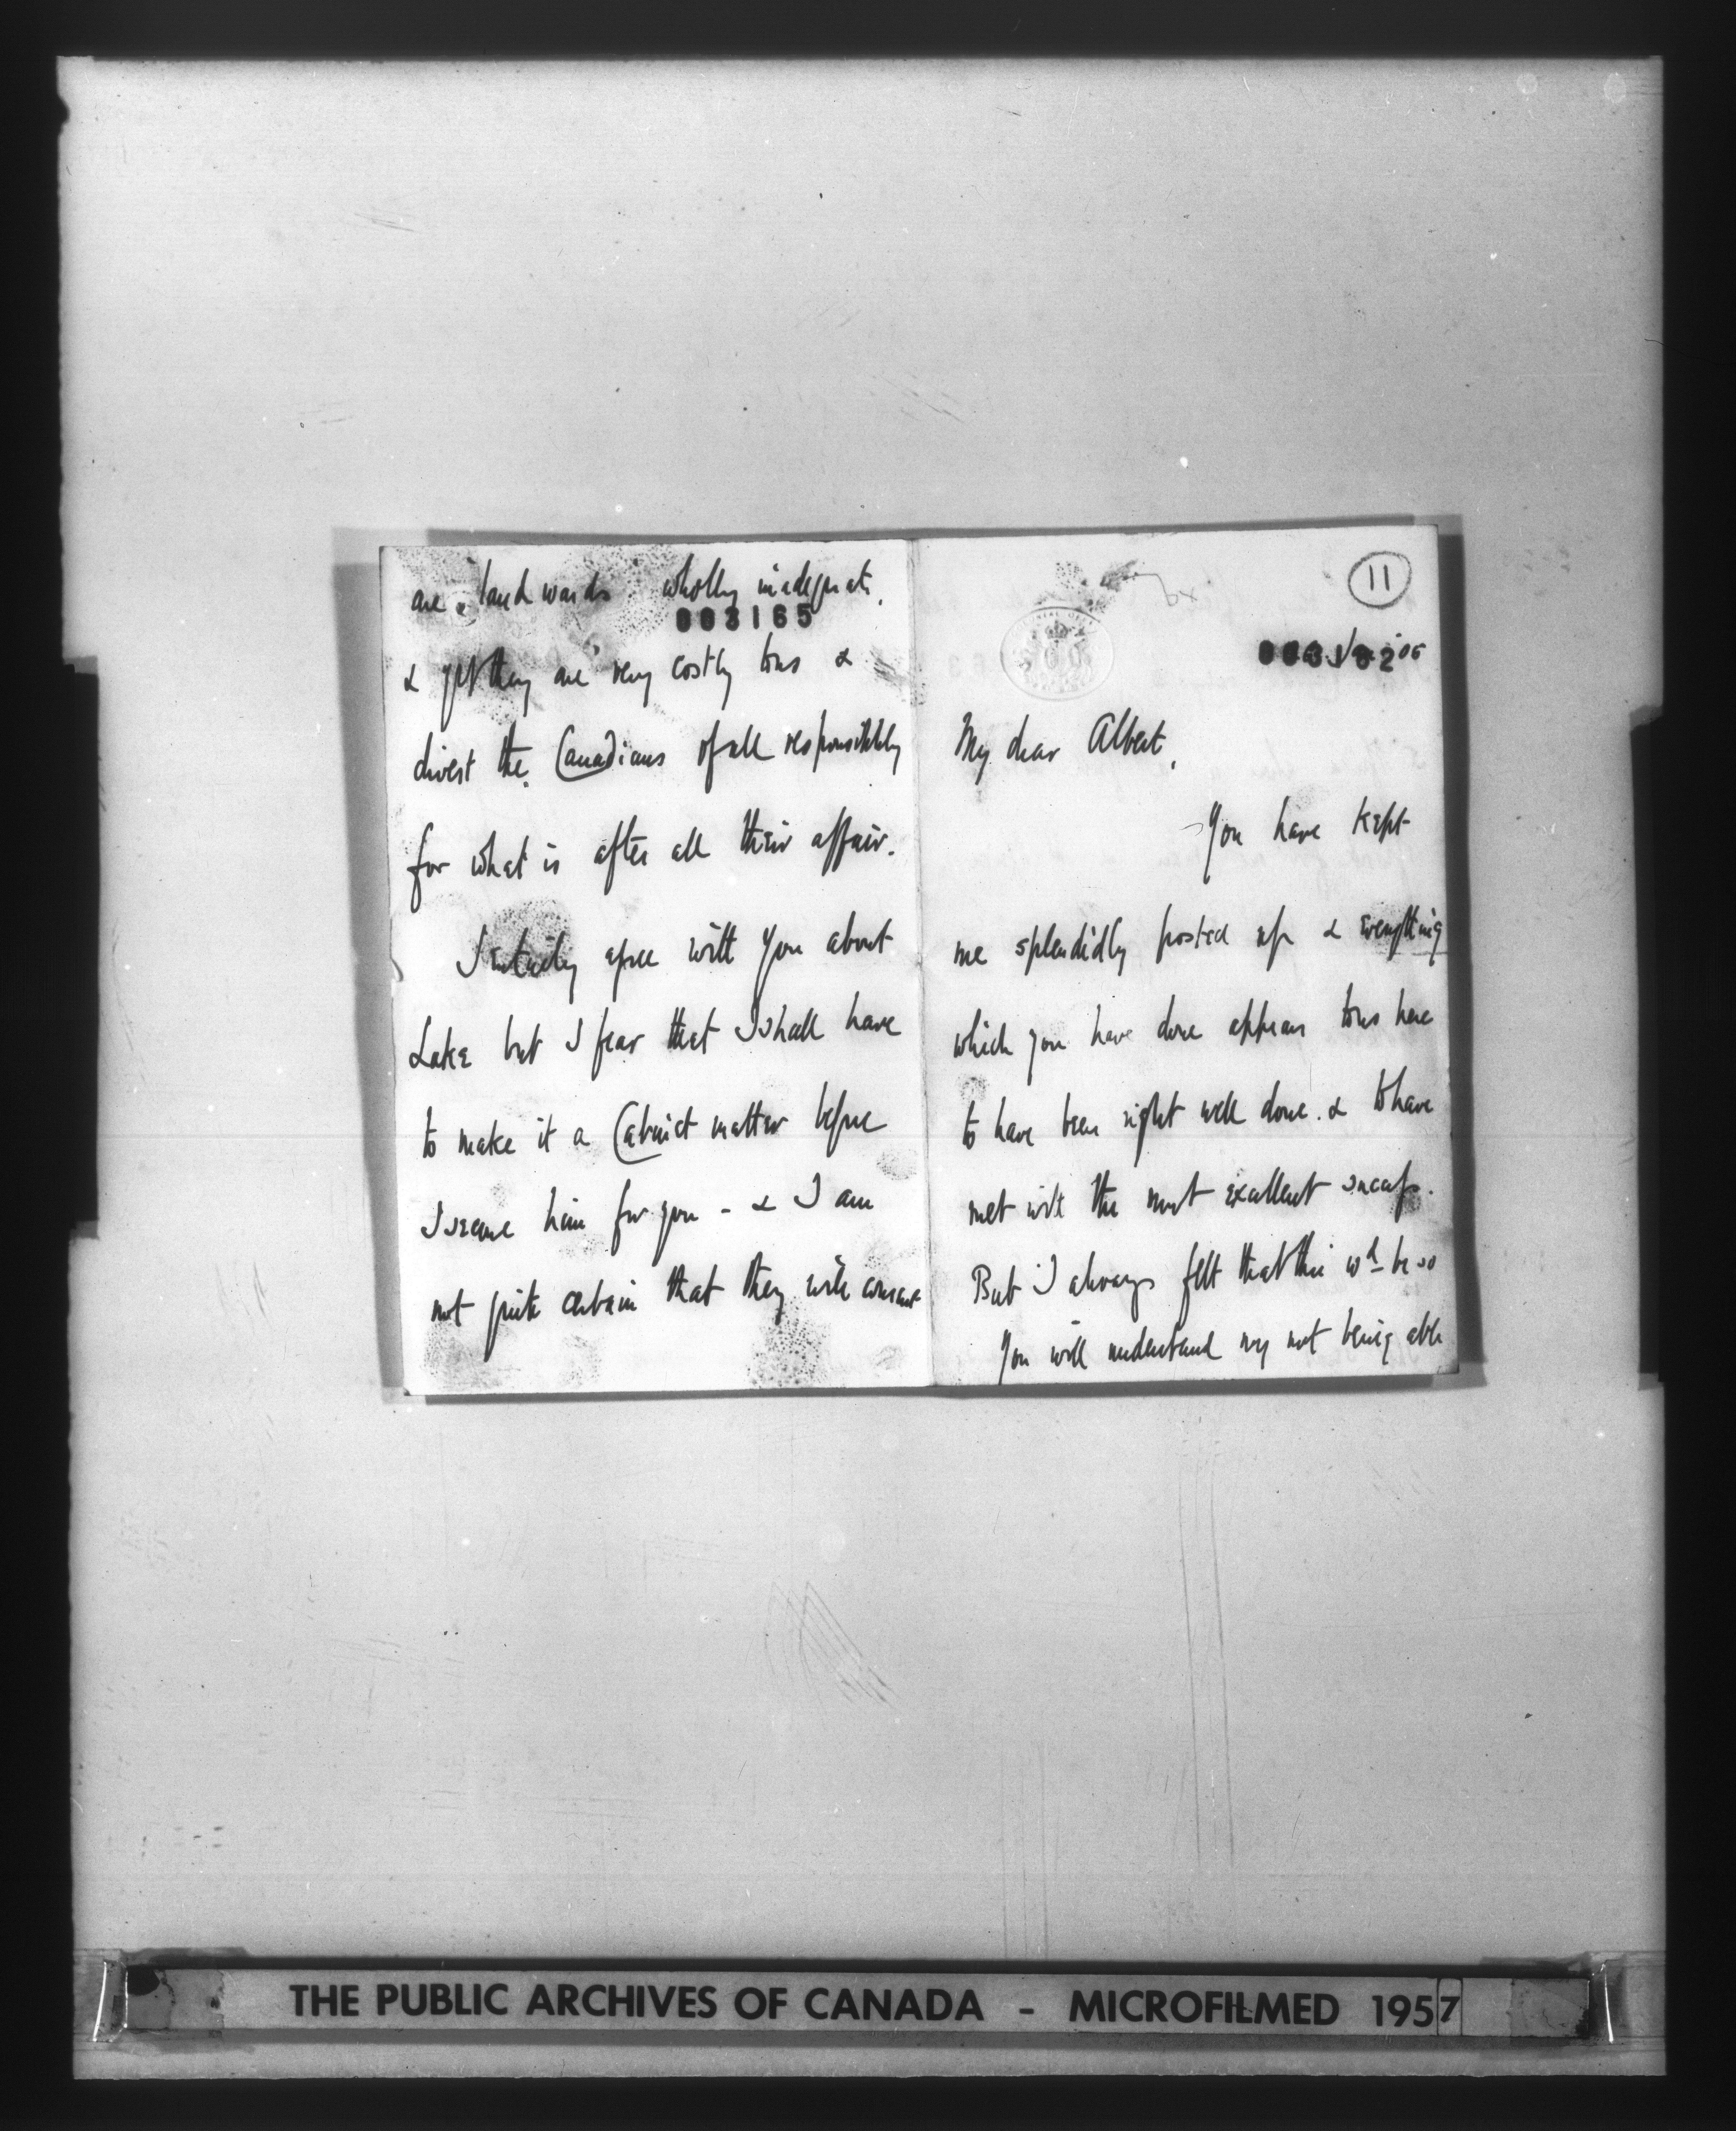 are landwards wholly inadequate.
003165
& yet they are very costly to us &
divest the Canadians of all responsibility
for what is after all their affair.
I entirely agree with you about
Lake but I fear that I shall have
to make it a Cabinet matter before
I secure him for you - & I am
not quite certain that they will consent
11
'05
My dear Albert,
You have kept
me splendidly posted up & everything
which you have done appears to us here
to have been right well done. & to have
met with the most excellent success.
But I always felt that this wd be so
You will understand my not being able
THE PUBLIC ARCHIVES OF CANADA - MICROFILMED 1957